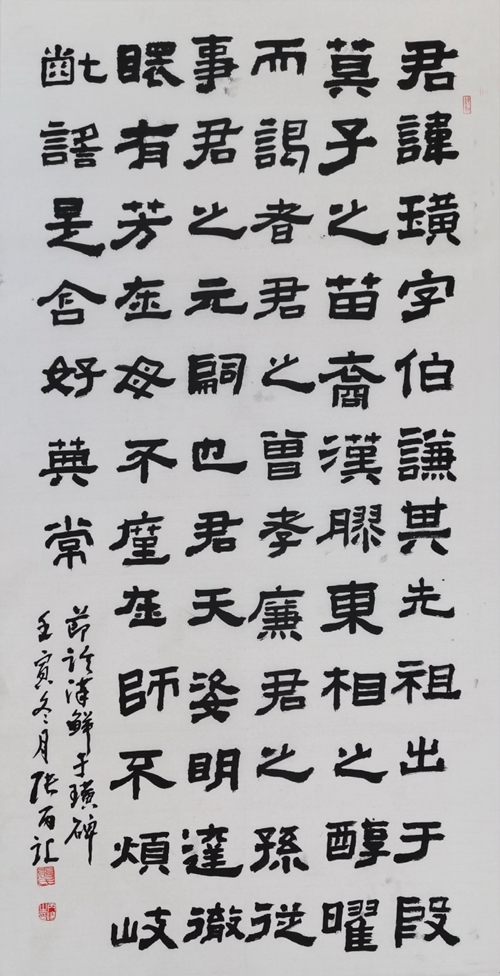 君諱璜字伯謙其先祖出于殷
箕子之苗裔漢膠東相之醇曜
而謁者君之曾孝廉君之孫從
事君之元嗣也君天姿明達徹
有芳在母不瘽在師不煩岐
齔謠是含好典常
節臨漢鮮于璜碑
壬寅冬月張百